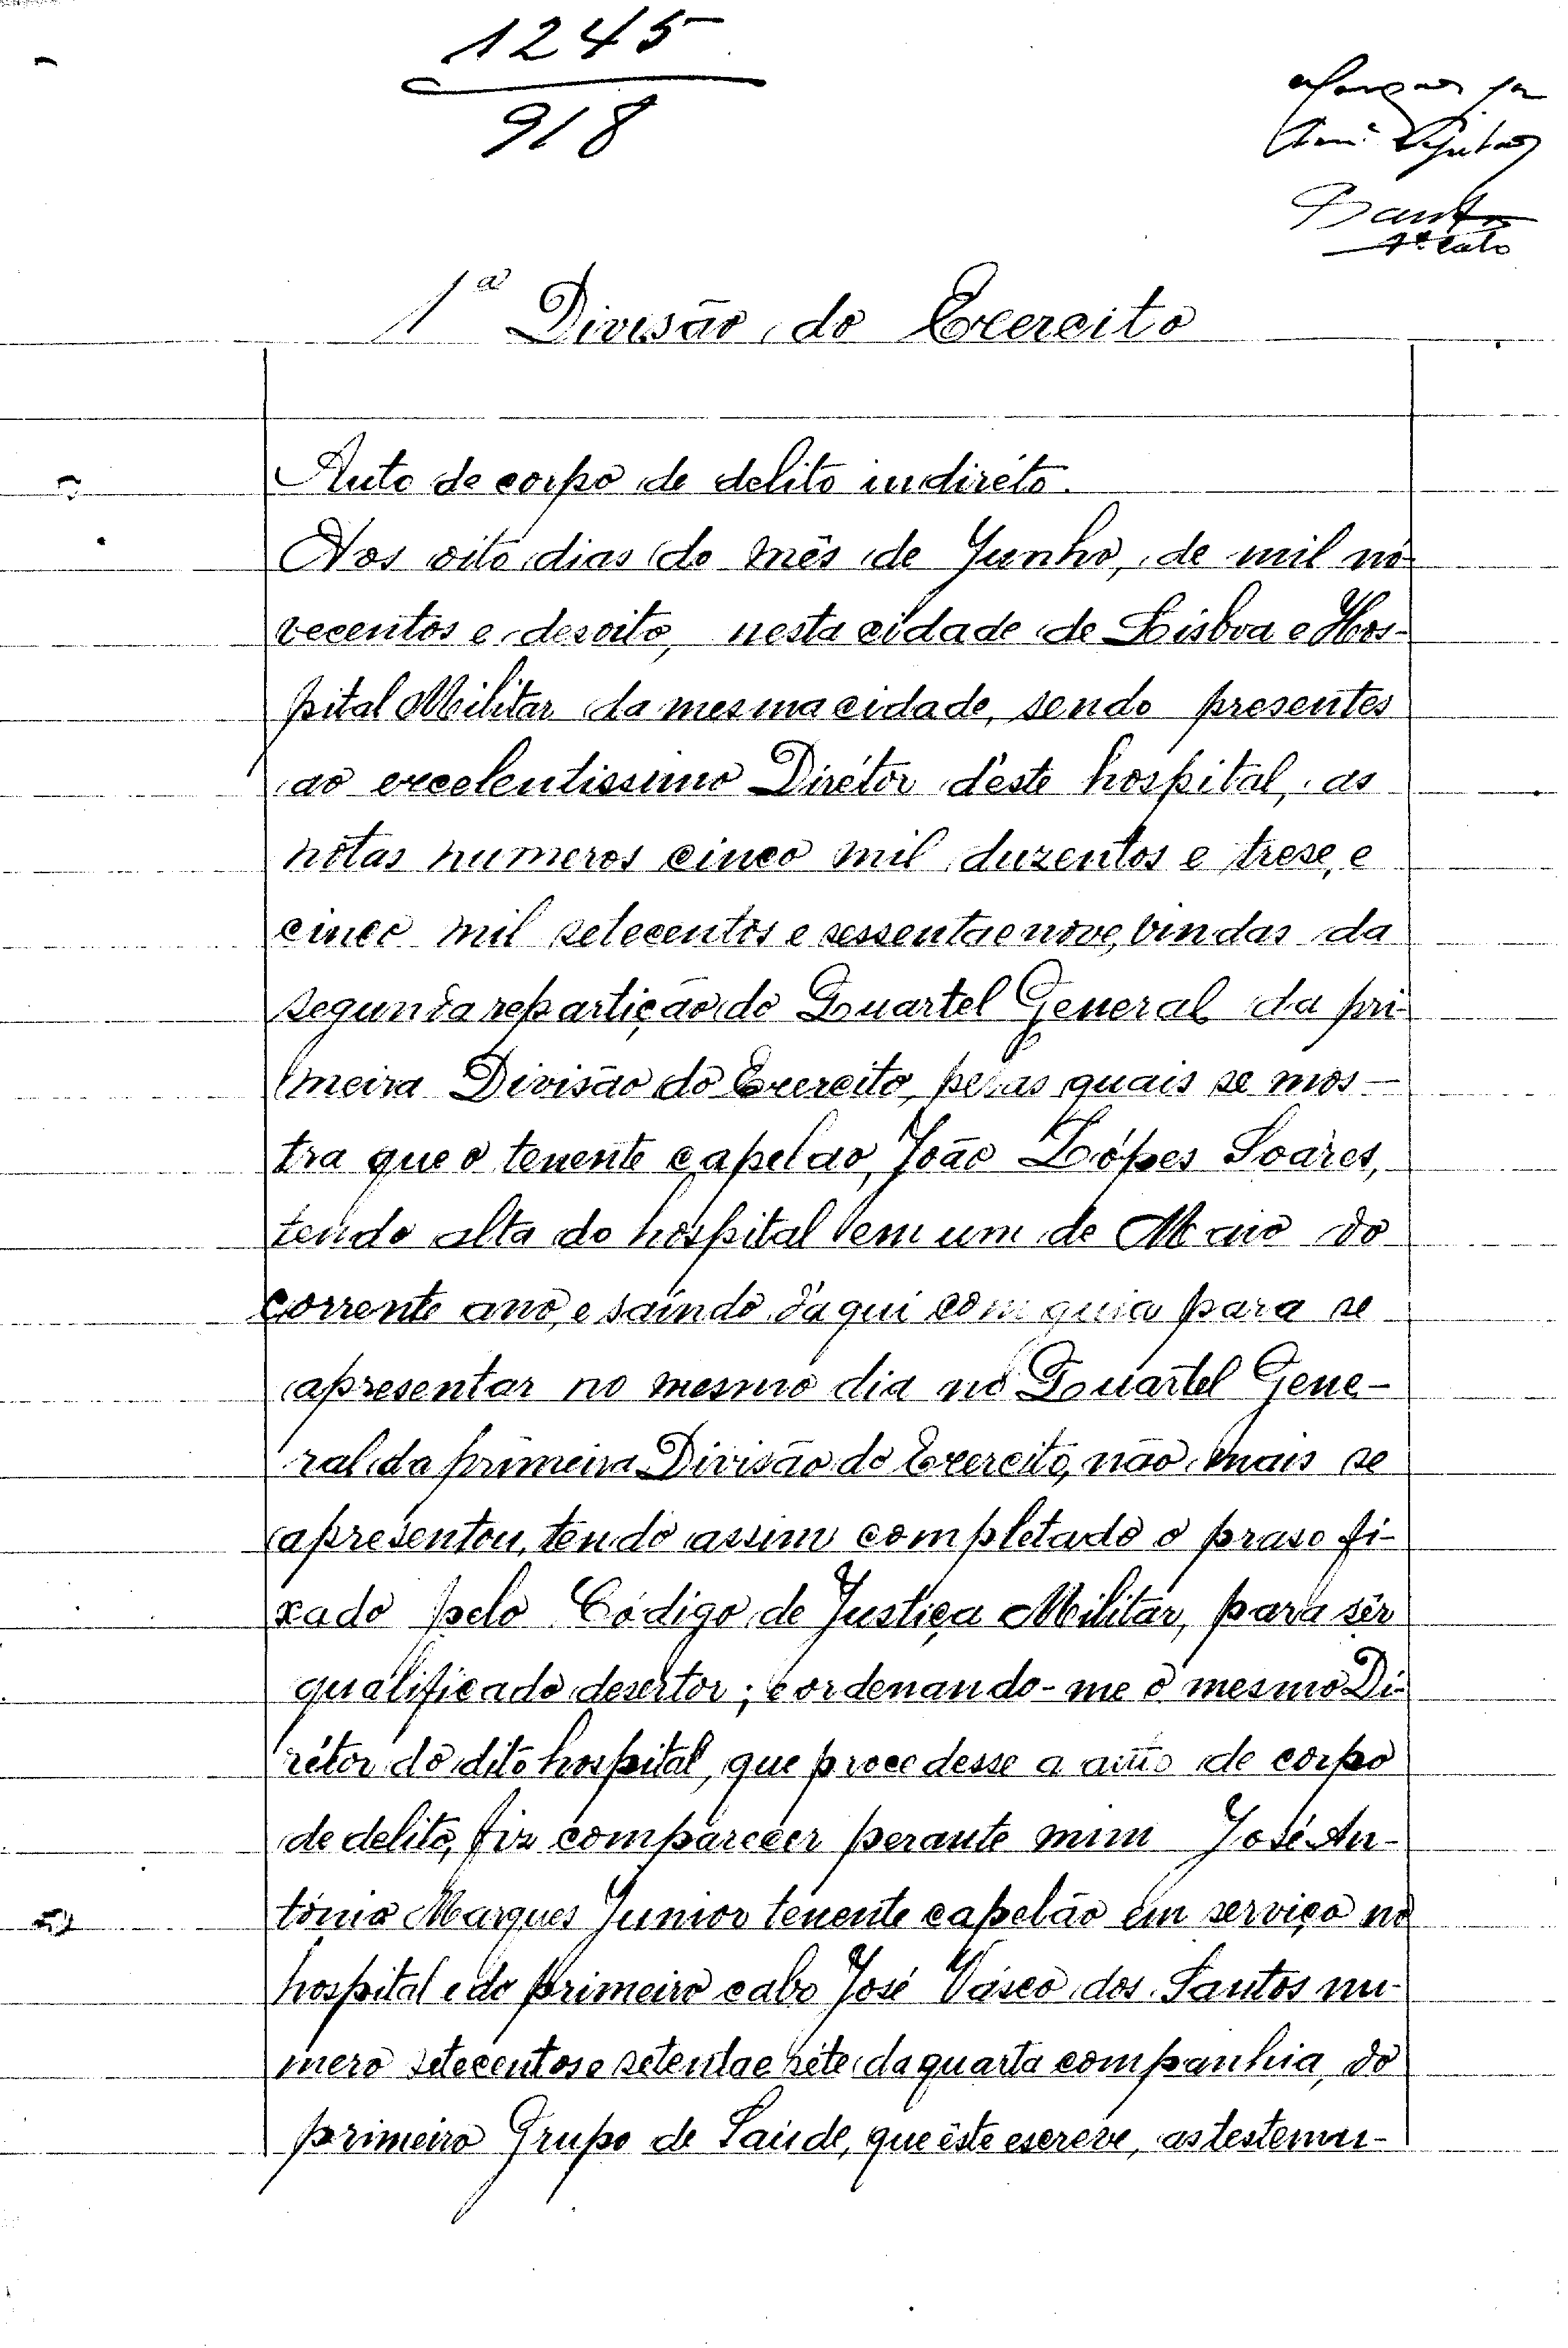 1245
918
Marques ja
Santos
1º cabo
1ª Divisão do Exercito
Auto de corpo de delito indiréto.
Aos oito dias do mês de Junho, de mil no-
vecentos e desoito, nesta cidade de Lisboa e Hos-
pital Militar da mesma cidade, sendo presentes
ao excelentissimo Dirétor dêste hospital, as
nótas numeros cinco mil duzentos e trese, e
cinco mil setecentos e sessenta e nove, vindas da
segunda repartição do Quartel General da pri-
meira Divisão do Exercito, pelas quais se mos-
tra que o tenente capelão, João Lópes Soares,
tendo alta do hospital em um de Maio do
corrente ano, e saindo d'aqui com guia para se
apresentar no mesmo dia no Quartel Gene-
ral da primeira Divisão do Exercito, não mais se
apresentou, tendo assim completado o praso fi-
xado pelo Código de Justiça Militar, para sêr
qualificado desertor; e ordenando-me o mesmo Di-
rétor do dito hospital, que procedesse a auto de corpo
de delito, fiz comparecer perante mim José An-
tónio Marques Junior tenente capelão em serviço no
hospital e do primeiro cabo José Vasco dos Santos nu-
mero setecentos e setenta e séte da quarta companhia, do
primeiro Grupo de Saúde, que êste escreve, as testemu-